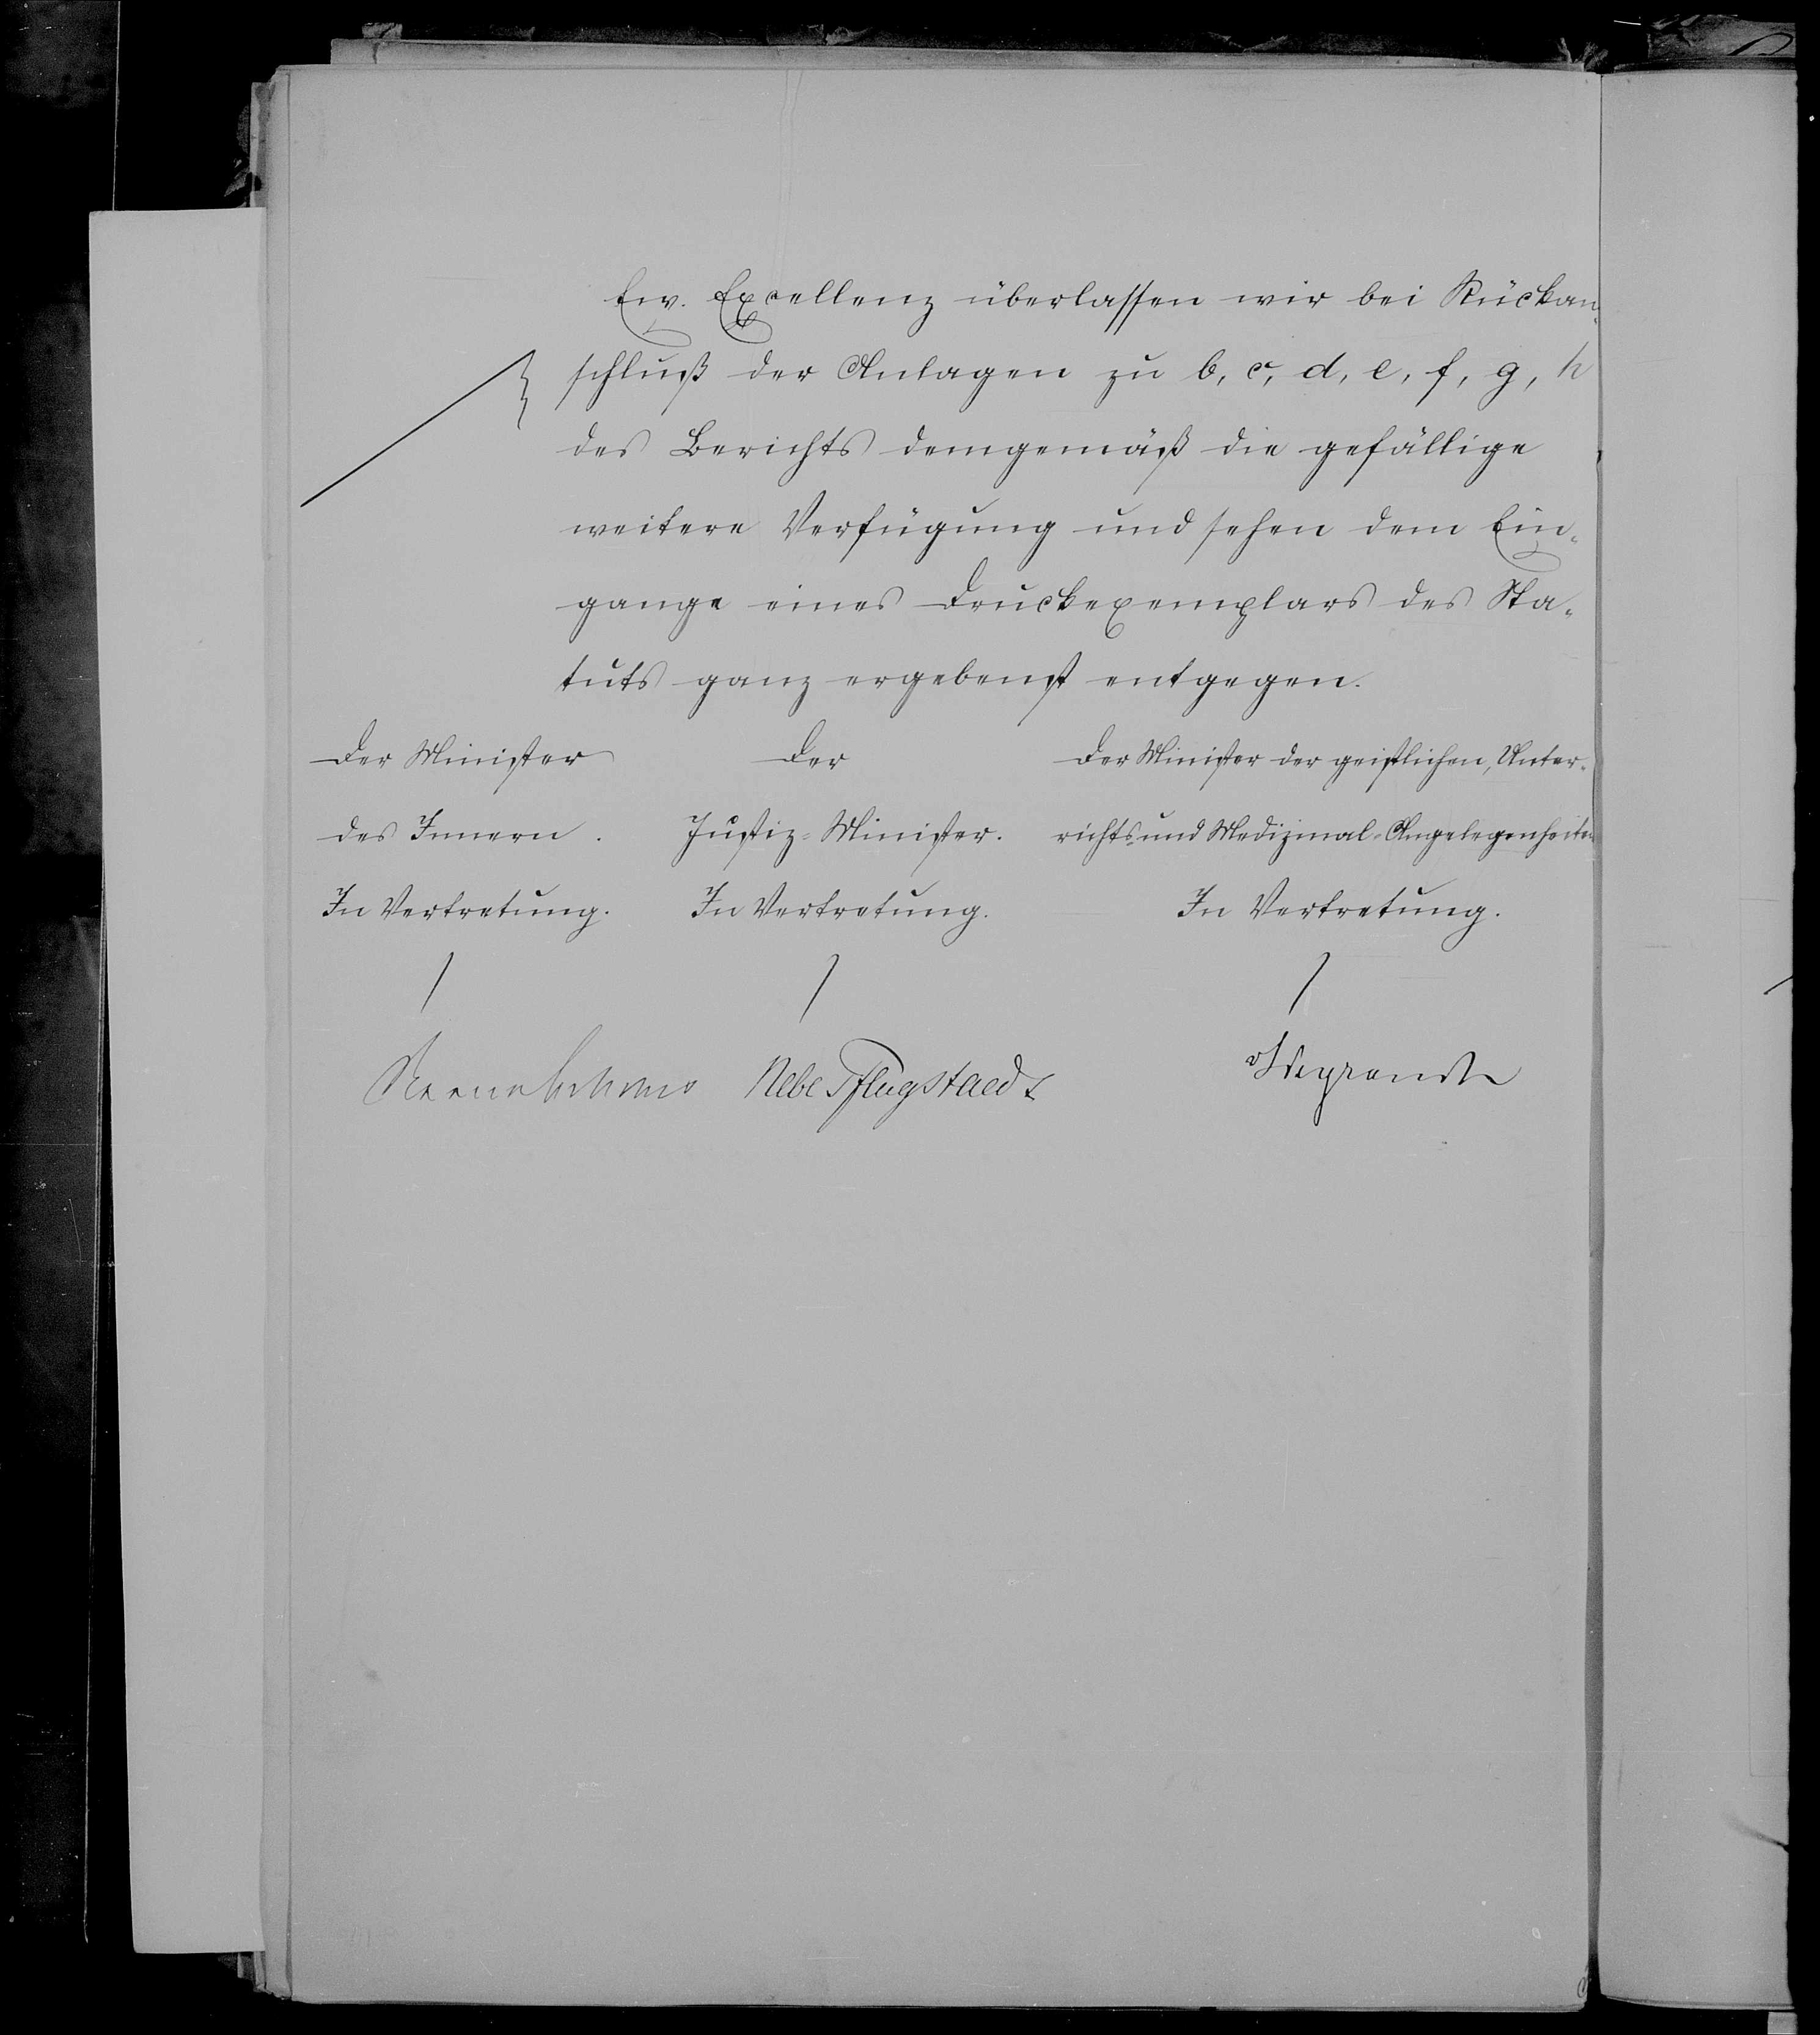 Ew. Excellenz überlassen wir bei Rückan-
schluß der Anlagen zu b, c, d, e, f, g, h
des Berichts demgemäß die gefällige
weitere Verfügung und sehen dem Ein-
gange eines Druckexemplars des Sta-
tuts ganz ergebenst entgegen.
Der Minister
des Innern.
In Vertretung.
Der
Justiz-Minister.
In Vertretung.
Nebe Pflugstaedt
Der Minister der geistlichen, Unter-
richts- und Medizinal-Angelegenheiten
In Vertretung.
Weyrauch